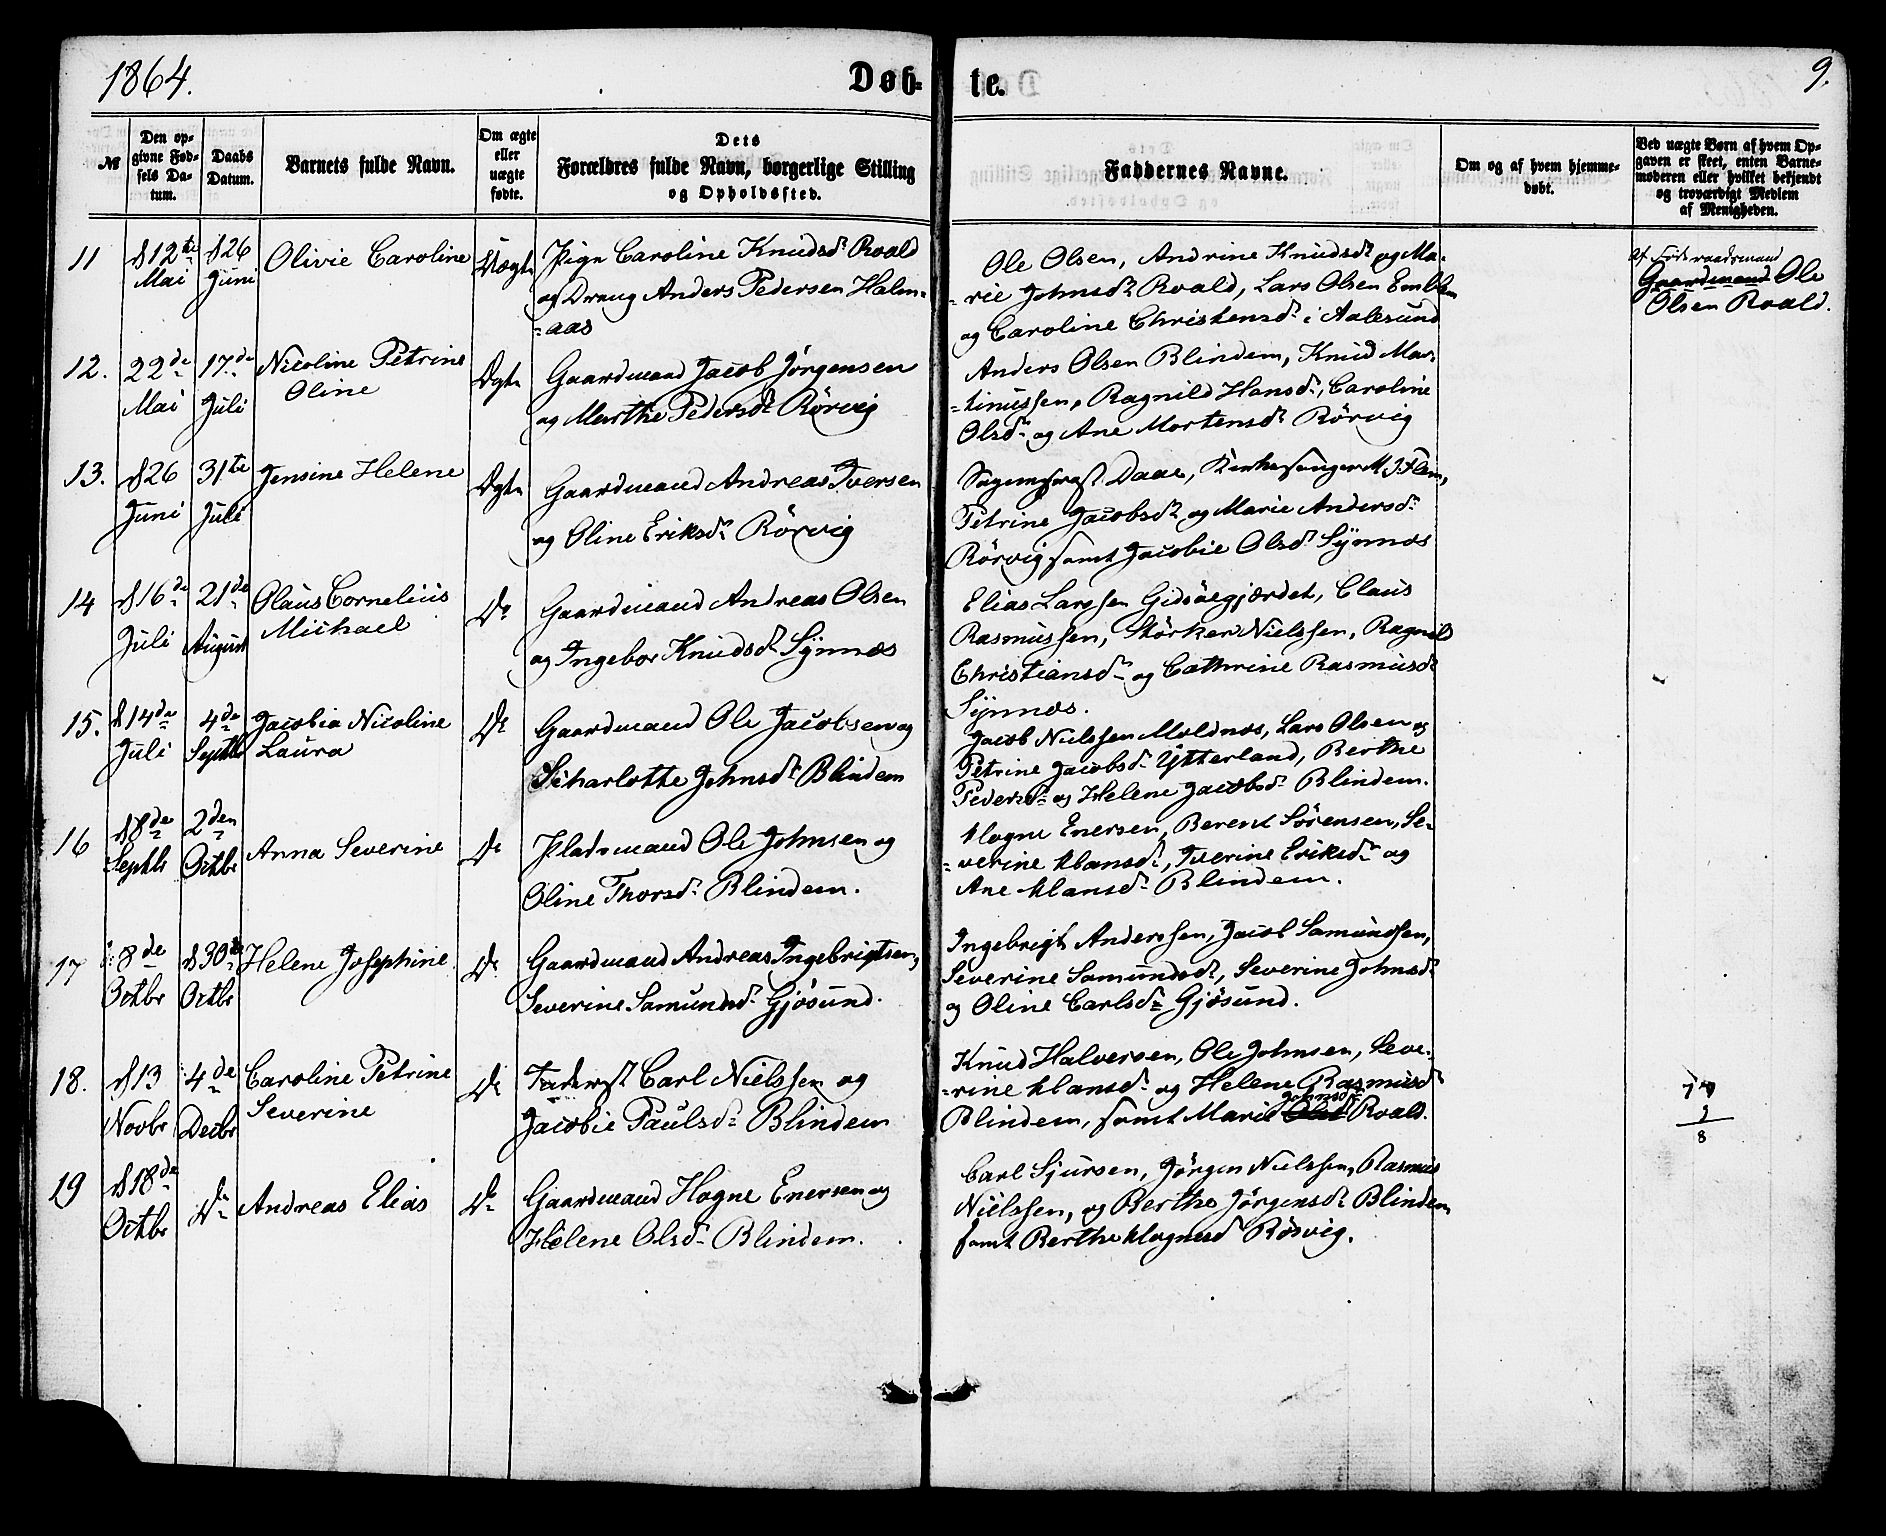 1864. Døb- te. 9.
№ Den op-givne Fød-sels Da-tum. Daabs Datum. Barnets fulde Navn. Om ægte eller uægte fødte. Dets Forældres fulde Navn, borgerlige Stilling og Opholdssted. Faddernes Navne. Om og af hvem hjemme-døbt. Ved uægte Børn af hvem Op-gaven er skeet, enten Barne-moderen eller hvilket bekjendt og troværdigt Medlem af Menigheden.
11 d 12te Mai d 26 Juni Olivie Caroline Uægte
Pige Caroline Knudsdr Roald
og Dreng Anders Pedersen Halm-
=aas
Ole Olsen, Andrine Knudsdr og Ma-
=rie Johnsdr Roald, Lars Olsen Emblem
og Caroline Christensdr i Aalesund
Af Föderaadsmand
Gaardmand Ole
Olsen Roald.
12. 22de Mai 17de Juli Nicoline Petrine
Oline
Ægte
Gaardmand Jacob Jörgensen
og Marthe Pedersdr Rörvig
Anders Olsen Blindem, Knud Mar-
=tinussen, Ragnild Hansdr, Caroline
Olsdr og Ane Mortensdr Rörvig
13. d 26 Juni 31te Juli Jensine Helene Ægte
Gaardmand Andreas Iversen
og Oline Eriksdr Rörvig
Sognepræst Daae, Kirkesanger M. J. Flem,
Petrine Jacobsdr og Marie Andersdr
Rörvig samt Jacobie Olsdr Synnæs
14 d 16de Juli 21de August Olaus Cornelius
Michael
Do
Gaardmand Andreas Olsen
og Ingebor Knudsdr Synnæs
Elias Larssen Gidsöegjærdet, Claus
Rasmussen, Störker Nielssen, Ragnild
Christiansdr og Cathrine Rasmusdr
Synnæs.
15. d 14de Juli 4de Septbr Jacobia Nicoline
Laura
Do
Gaardmand Ole Jacobsen og
Scharlotte Johnsdr Blindem
Jacob Nielssen Moldnæs, Lars Olsen og
Petrine Jacobsdr Ytterland, Berthe
Pedersdr og Helene Jacobsdr Blindem.
16 d 8de Septbr 2den Octbr Anna Severine Do
Pladsmand Ole Johnsen og
Oline Thorsdr Blindem.
Hogne Enersen, Berent Sörensen, Se-
=verine Hansdr, Iverine Eriksdr og
Ane Hansdr Blindem.
17 8de Octbr d 30te Octbr Helene Josephine Do
Gaardmand Andreas Ingebrigtsen,
Severine Samundsdr Gjösund.
Ingebrigt Anderssen, Jacob Samundsen,
Severine Samundsdr, Severine Johnsdr
og Oline Carlsdr Gjösund.
18. d 13 Novbr 4de Decbr Caroline Petrine
Severine
Do
Carl Nielssen og
Jacobie Paulsdr Blindem
Knud Halversen, Ole Johnsen, Seve-
=rine Hansdr og Helene Rasmusdr
Johnsdr
Blindem, samt Marie Olsdr Roald.
8
19 d 18de Octbr Do Andreas Elias Do
Gaardmand Hogne Enersen og
Helene Olsdr Blindem.
Carl Sjursen, Jörgen Nielssen, Rasmus
Nielssen, og Berthe Jörgensdr Blindem
samt Berthe Hognesdr Rösvig.